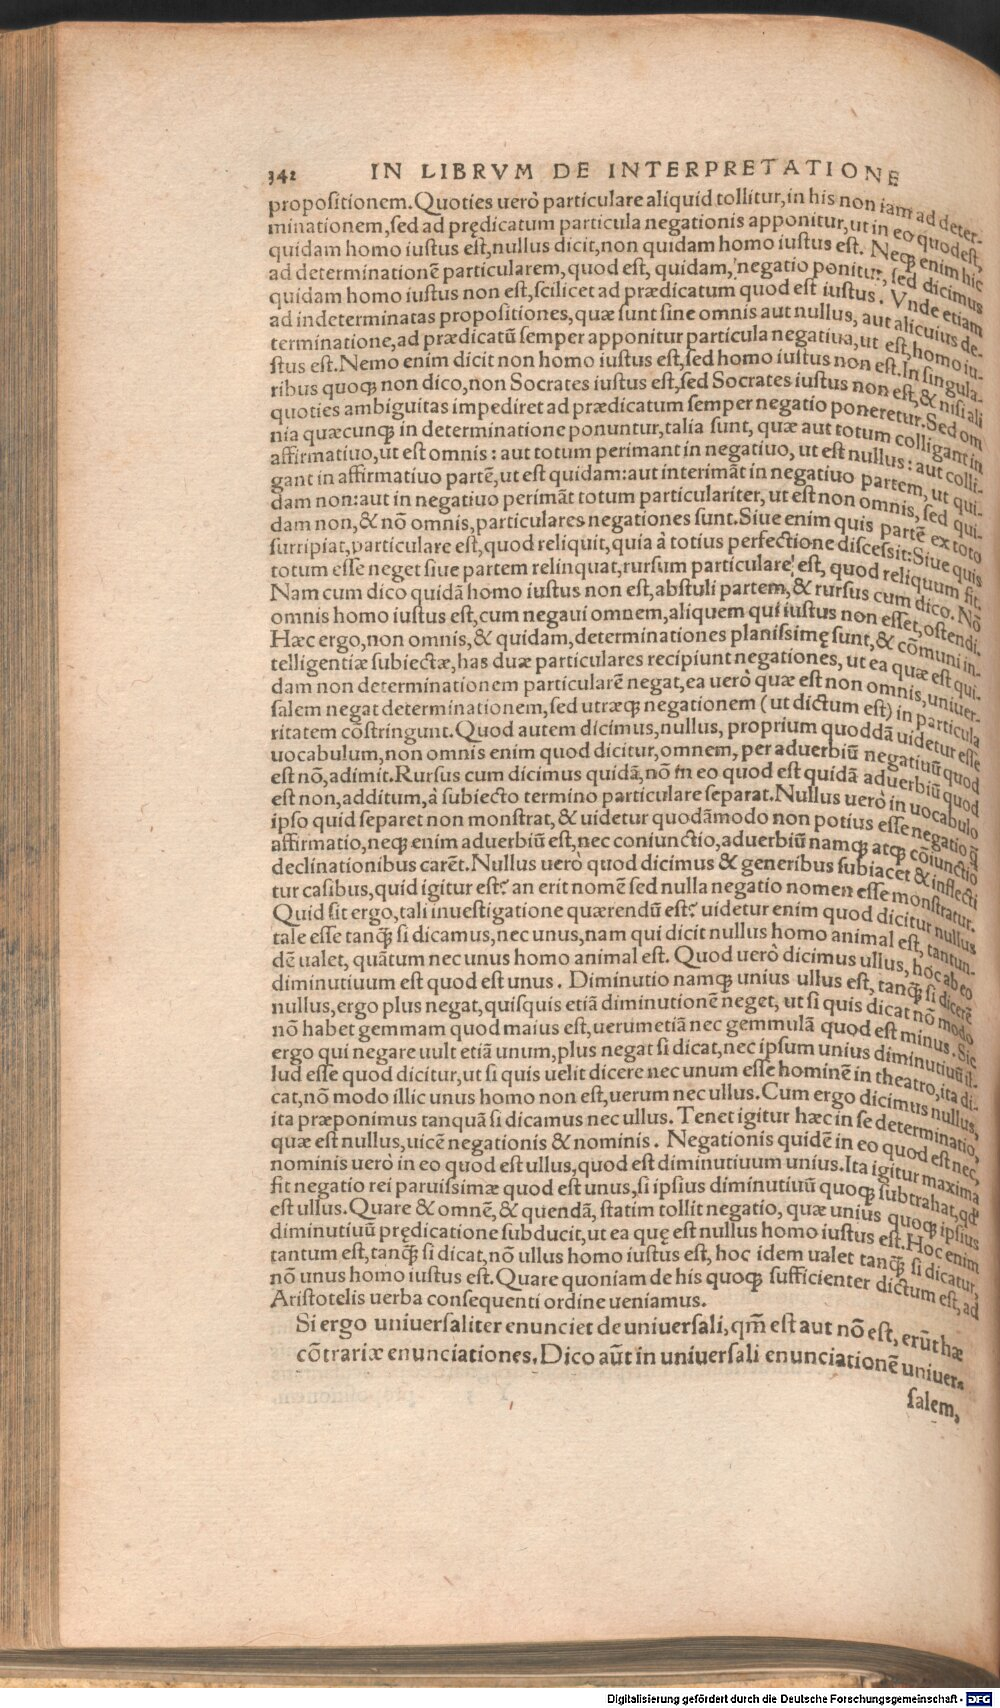 342 IN LIBRVM DE INTERPRETATIONE
propoſitionem. Quoties uerò particulare aliquid tollitur, in his non iam ad deter-
minationem, ſed ad prędicatum particula negationis apponitur, ut in eo quod eſt,
quidam homo iuſtus eſt, nullus dicit, non quidam homo iuſtus eſt. Neqꝫ enim hic
ad determinationẽ particularem, quod eſt, quidam, negatio ponitur, ſed dicimus
quidam homo iuſtus non eſt, ſcilicet ad prædicatum quod eſt iuſtus. Vnde etiam
ad indeterminatas propoſitiones, quæ ſunt ſine omnis aut nullus, aut alicuius de-
terminatione, ad prædicatũ ſemper apponitur particula negatiua, ut eſt, homo iu-
ſtus eſt. Nemo enim dicit non homo iuſtus eſt, ſed homo iuſtus non eſt. In ſingula-
ribus quoqꝫ non dico, non Socrates iuſtus eſt, ſed Socrates iuſtus non eſt, & niſi ali
quoties ambiguitas impediret ad prædicatum ſemper negatio poneretur. Sed om
nia quæcunqꝫ in determinatione ponuntur, talia ſunt, quæ aut totum colligant in
affirmatiuo, ut eſt omnis: aut totum perimant in negatiuo, ut eſt nullus: aut colli-
gant in affirmatiuo partẽ, ut eſt quidam: aut interimãt in negatiuo partem, ut qui-
dam non: aut in negatiuo perimãt totum particulariter, ut eſt non omnis, ſed qui-
dam non, & nõ omnis, particulares negationes ſunt. Siue enim quis partẽ ex toto
ſurripiat, particulare eſt, quod reliquit, quia à totius perfectione diſceſsit: Siue quis
totum eſſe neget ſiue partem relinquat, rurſum particulare eſt, quod reliquum fit.
Nam cum dico quidã homo iuſtus non eſt, abſtuli partem, & rurſus cum dico. Nõ
omnis homo iuſtus eſt, cum negaui omnem, aliquem qui iuſtus non eſſet, oſtendi.
Hæc ergo, non omnis, & quidam, determinationes planiſsimę ſunt, & cõmuni in-
telligentiæ ſubiectæ, has duæ particulares recipiunt negationes, ut ea quæ eſt qui-
dam non determinationem particularẽ negat, ea uerò quæ eſt non omnis, uniuer-
ſalem negat determinationem, ſed utræqꝫ negationem (ut dictum eſt) in particula
ritatem cõſtringunt. Quod autem dicimus, nullus, proprium quoddã uidetur eſſe
uocabulum, non omnis enim quod dicitur, omnem, per aduerbiũ negatiuũ quod
eſt nõ, adimit. Rurſus cum dicimus quidã, nõ in eo quod eſt quidã aduerbiũ quod
eſt non, additum, à ſubiecto termino particulare ſeparat. Nullus uerò in uocabulo
ipſo quid ſeparet non monſtrat, & uidetur quodãmodo non potius eſſe negatio q̃
affirmatio, neqꝫ enim aduerbiũ eſt, nec coniunctio, aduerbiũ namqꝫ atqꝫ cõiunctio
declinationibus carẽt. Nullus uerò quod dicimus & generibus ſubiacet & inflecti
tur caſibus, quid igitur eſt? an erit nomẽ ſed nulla negatio nomen eſſe monſtratur.
Quid ſit ergo, tali inueſtigatione quærendũ eſt? uidetur enim quod dicitur nullus
tale eſſe tanqꝫ̃ ſi dicamus, nec unus, nam qui dicit nullus homo animal eſt, tantun-
dẽ ualet, quãtum nec unus homo animal eſt. Quod uerò dicimus ullus, hoc ab eo
diminutiuum eſt quod eſt unus. Diminutio namqꝫ unius ullus eſt, tanqꝫ̃ ſi dicerẽ
nullus, ergo plus negat, quiſquis etiã diminutionẽ neget, ut ſi quis dicat nõ modo
nõ habet gemmam quod maius eſt, uerumetiã nec gemmulã quod eſt minus. Sic
ergo qui negare uult etiã unum, plus negat ſi dicat, nec ipſum unius diminutiuũ il-
lud eſſe quod dicitur, ut ſi quis uelit dicere nec unum eſſe hominẽ in theatro, ita di-
cat, nõ modo illic unus homo non eſt, uerum nec ullus. Cum ergo dicimus nullus,
ita præponimus tanquã ſi dicamus nec ullus. Tenet igitur hæc in ſe determinatio,
quæ eſt nullus, uicẽ negationis & nominis. Negationis quidẽ in eo quod eſt nec,
nominis uerò in eo quod eſt ullus, quod eſt diminutiuum unius. Ita igitur maxima
fit negatio rei paruiſsimæ quod eſt unus, ſi ipſius diminutiuũ quoqꝫ ſubtrahat, qđ
eſt ullus. Quare & omnẽ, & quendã, ſtatim tollit negatio, quæ unius quoqꝫ ipſius
diminutiuũ prędicatione ſubducit, ut ea quę eſt nullus homo iuſtus eſt. Hoc enim
tantum eſt, tanqꝫ̃ ſi dicat, nõ ullus homo iuſtus eſt, hoc idem ualet tanqꝫ̃ ſi dicatur,
nõ unus homo iuſtus eſt. Quare quoniam de his quoqꝫ ſufficienter dictum eſt, ad
Ariſtotelis uerba conſequenti ordine ueniamus.
Si ergo uniuerſaliter enunciet de uniuerſali, qm̃ eſt aut nõ eſt, erũt hæ
cõtrariæ enunciationes. Dico aũt in uniuerſali enunciationẽ uniuer-
ſalem,
Digitalisierung gefördert durch die Deutsche Forschungsgemeinschaft - DFG